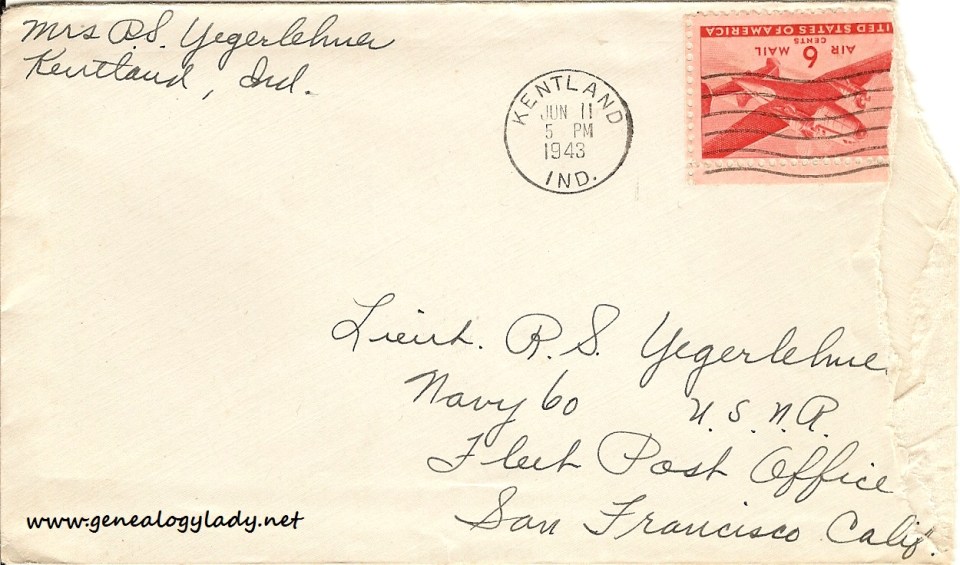 Mrs R.S. Yegerlehner
Kentland, Ind.
KENTLAND
JUN 11
5 PM
1943
IND.
UNITED STATES OF AMERICA
6 CENTS
AIR MAIL
Lieut. R. S. Yegerlehne
Navy 60 U.S.N.R.
Fleet Post Office
San Francisco Calif.
www.genealogylady.net